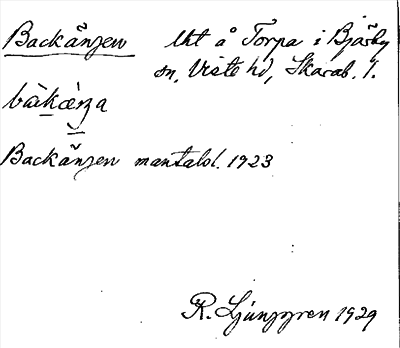 Backängen Lht å Torpa i Bjärby
sn, Viste hd, Skarab. l.
bàkæ̀ŋa
Backängen mantalsl. 1923
R. Ljunggren 1929